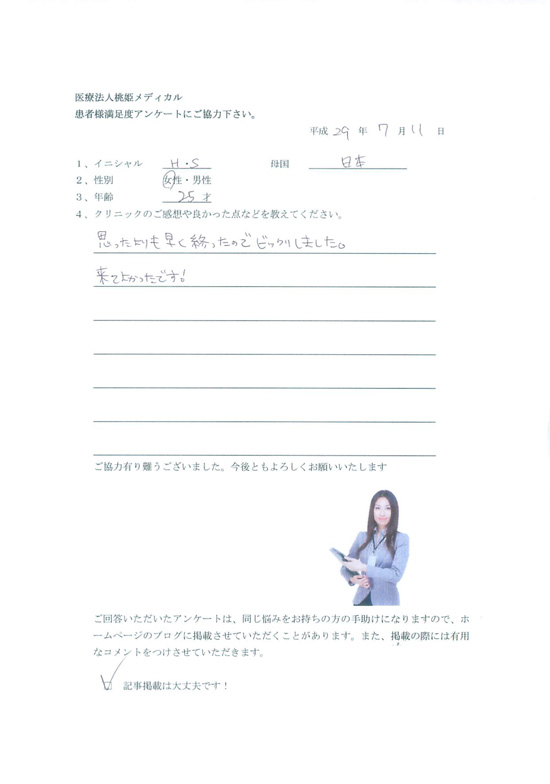 医療法人桃姫メディカル
患者様満足度アンケートにご協力下さい。
平成 29 年 7 月 11 日
1、イニシャル H・S 母国 日本
2、性別 女性・男性
3、年齢 25才
4、クリニックのご感想や良かった点などを教えてください。
思ったよりも早く終ったのでビックリしました。
来てよかったです!
ご協力有り難うございました。今後ともよろしくお願いいたします
ご回答いただいたアンケートは、同じ悩みをお持ちの方の手助けになりますので、ホ
ームページのブログに掲載させていただくことがあります。また、掲載の際には有用
なコメントをつけさせていただきます。
記事掲載は大丈夫です!